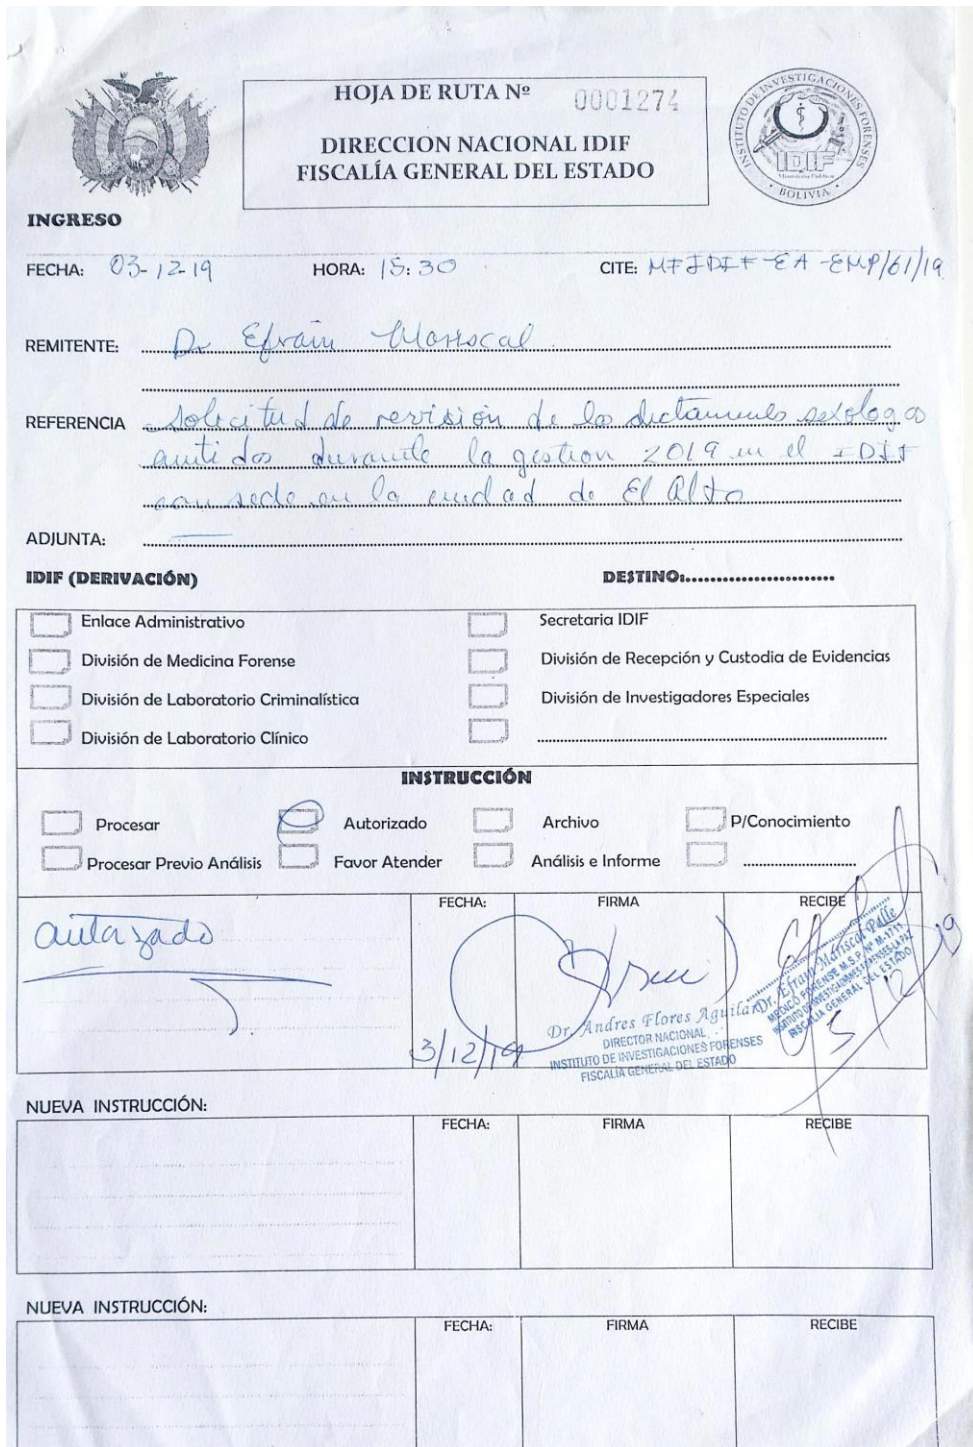 HOJA DE RUTA Nº 0001274
DIRECCION NACIONAL IDIF
FISCALÍA GENERAL DEL ESTADO
INSTITUTO DE INVESTIGACIONES FORENSES
IDIF
Ministerio Público
BOLIVIA
INGRESO
FECHA: 03-12-19 HORA: 15:30 CITE: MFIDIF-EA-EMP/61/19
REMITENTE: Dr Efraín Mariscal
REFERENCIA Solicitud de revisión de los dictamenes sexologos
emitidos durante la gestion 2019 en el IDIF
con sede en la ciudad de El Alto
ADJUNTA:
IDIF (DERIVACIÓN) DESTINO:
Enlace Administrativo Secretaria IDIF
División de Medicina Forense División de Recepción y Custodia de Evidencias
División de Laboratorio Criminalística División de Investigadores Especiales
División de Laboratorio Clínico
INSTRUCCIÓN
Procesar Autorizado Archivo P/Conocimiento
Procesar Previo Análisis Favor Atender Análisis e Informe
FECHA: FIRMA RECIBE
autorizado
3/12/19
Dr. Andres Flores Aguilar
DIRECTOR NACIONAL
INSTITUTO DE INVESTIGACIONES FORENSES
FISCALÍA GENERAL DEL ESTADO
Dr. Efraín Mariscal Palle
MEDICO FORENSE M.S.P. Nº M-1711
INSTITUTO DE INVESTIGACIONES FORENSES-LA PAZ
FISCALIA GENERAL DEL ESTADO
NUEVA INSTRUCCIÓN:
FECHA: FIRMA RECIBE
NUEVA INSTRUCCIÓN:
FECHA: FIRMA RECIBE